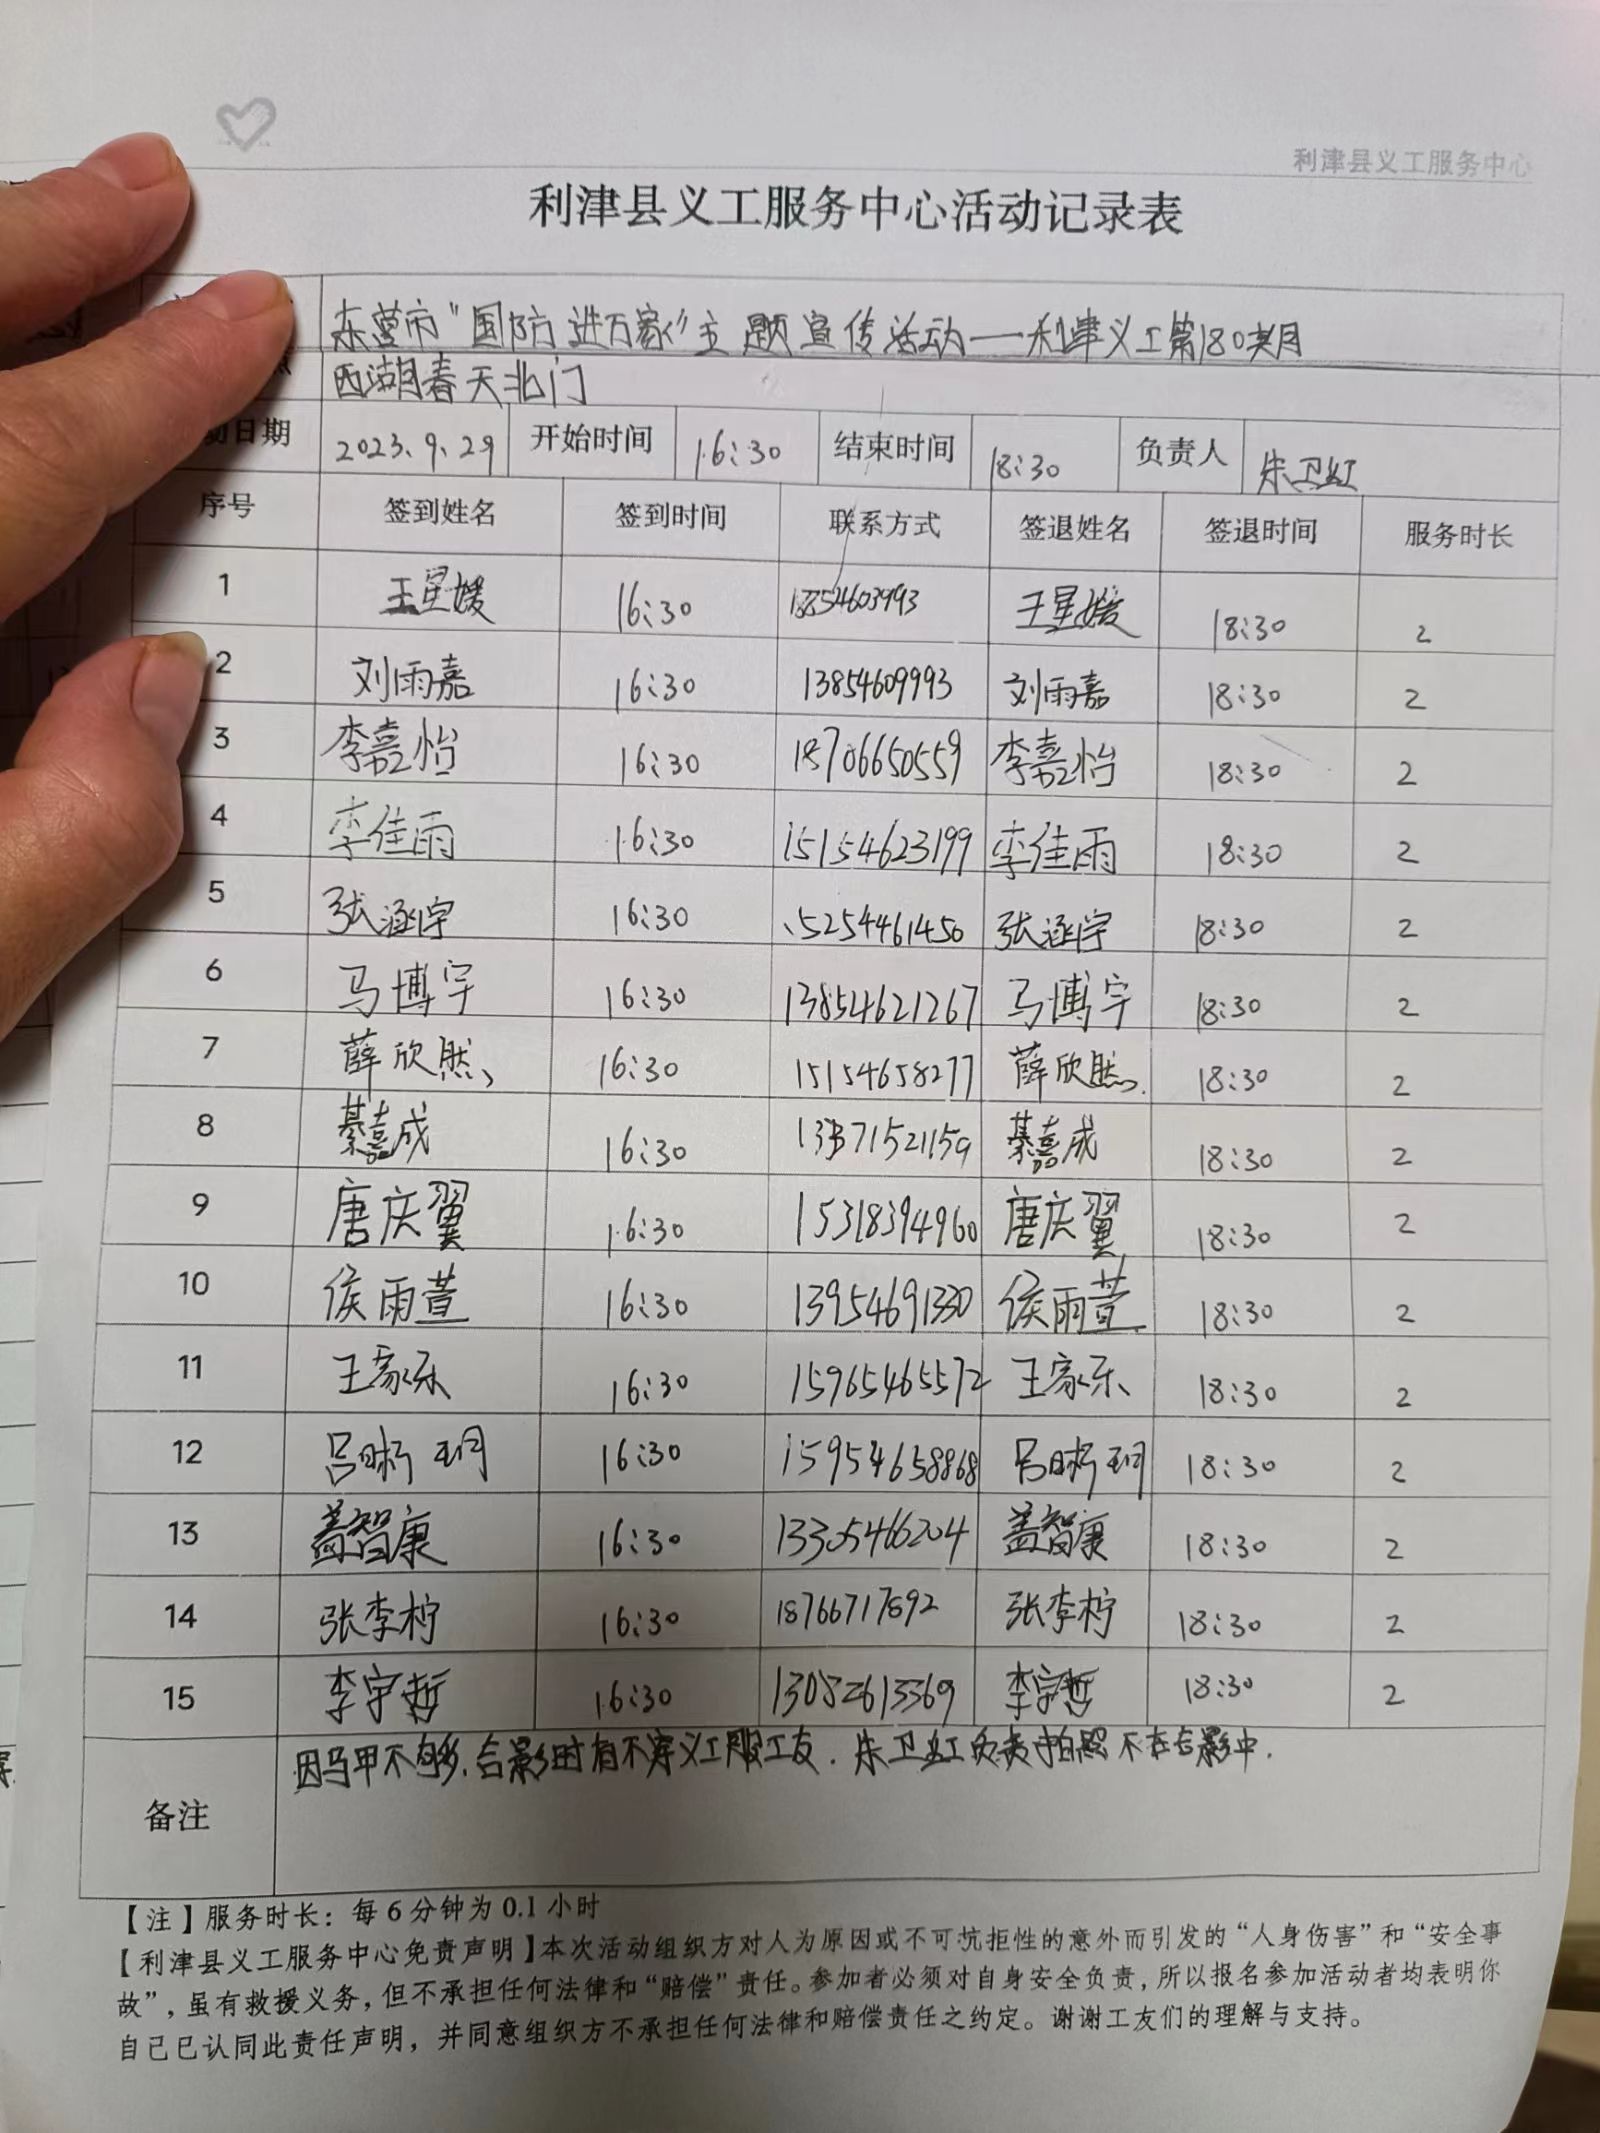 利津县义工服务中心
利津县义工服务中心活动记录表
东营市“国防进万家”主题宣传活动——利津义工第180期
西湖春天北门
动日期 2023.9.29 开始时间 16:30 结束时间 18:30 负责人 朱卫红
序号 签到姓名 签到时间 联系方式 签退姓名 签退时间 服务时长
1 王星媛 16:30 18854603993 王星媛 18:30 2
2 刘雨嘉 16:30 13854609993 刘雨嘉 18:30 2
3 李嘉怡 16:30 18706650559 李嘉怡 18:30 2
4 李佳雨 16:30 15154623199 李佳雨 18:30 2
5 张涵宇 16:30 15254461450 张涵宇 18:30 2
6 马博宇 16:30 13854621267 马博宇 18:30 2
7 薛欣然 16:30 15154658277 薛欣然 18:30 2
8 綦嘉成 16:30 綦嘉成 18:30 2
9 唐庆翼 16:30 15318394960 唐庆翼 18:30 2
10 侯雨萱 16:30 13954691330 侯雨萱 18:30 2
11 王家乐 16:30 15965465572 王家乐 18:30 2
12 吕晰玥 16:30 15954658868 吕晰玥 18:30 2
13 盖智康 16:30 13305466204 盖智康 18:30 2
14 张李柠 16:30 18766717892 张李柠 18:30 2
15 李宇哲 16:30 李宇哲 18:30 2
备注 因马甲不够,合影时有不穿义工服工友.朱卫红负责拍照不在合影中.
【注】服务时长：每6分钟为0.1小时
【利津县义工服务中心免责声明】本次活动组织方对人为原因或不可抗拒性的意外而引发的“人身伤害”和“安全事
故”，虽有救援义务，但不承担任何法律和“赔偿”责任。参加者必须对自身安全负责，所以报名参加活动者均表明你
自己已认同此责任声明，并同意组织方不承担任何法律和赔偿责任之约定。谢谢工友们的理解与支持。